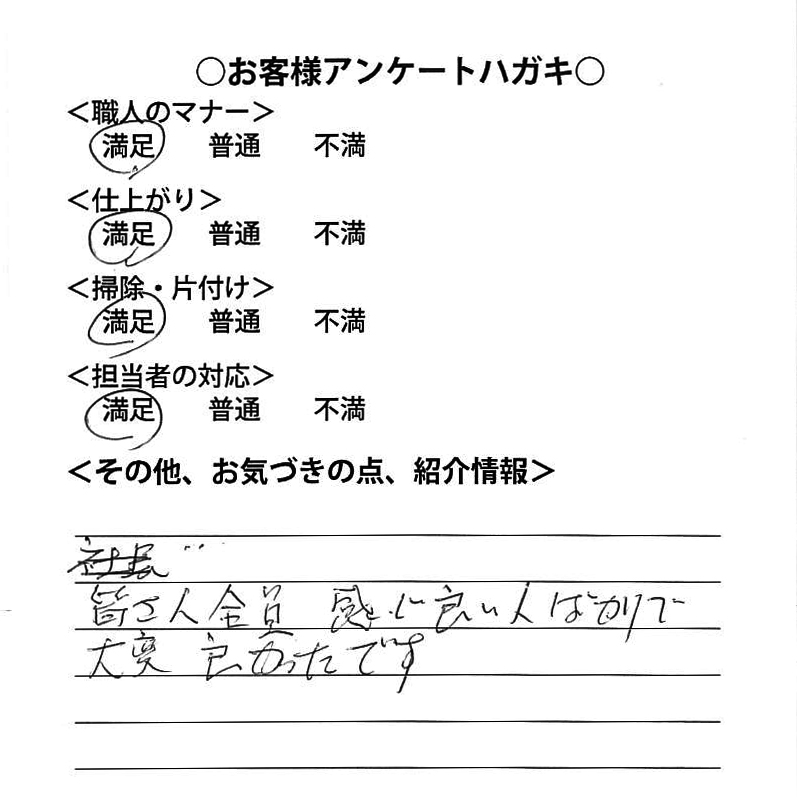 ○お客様アンケートハガキ○
＜職人のマナー＞
満足 普通 不満
＜仕上がり＞
満足 普通 不満
＜掃除・片付け＞
満足 普通 不満
＜担当者の対応＞
満足 普通 不満
＜その他、お気づきの点、紹介情報＞
社長
皆さん全員 感じ良い人ばかりで
大変 良かったです